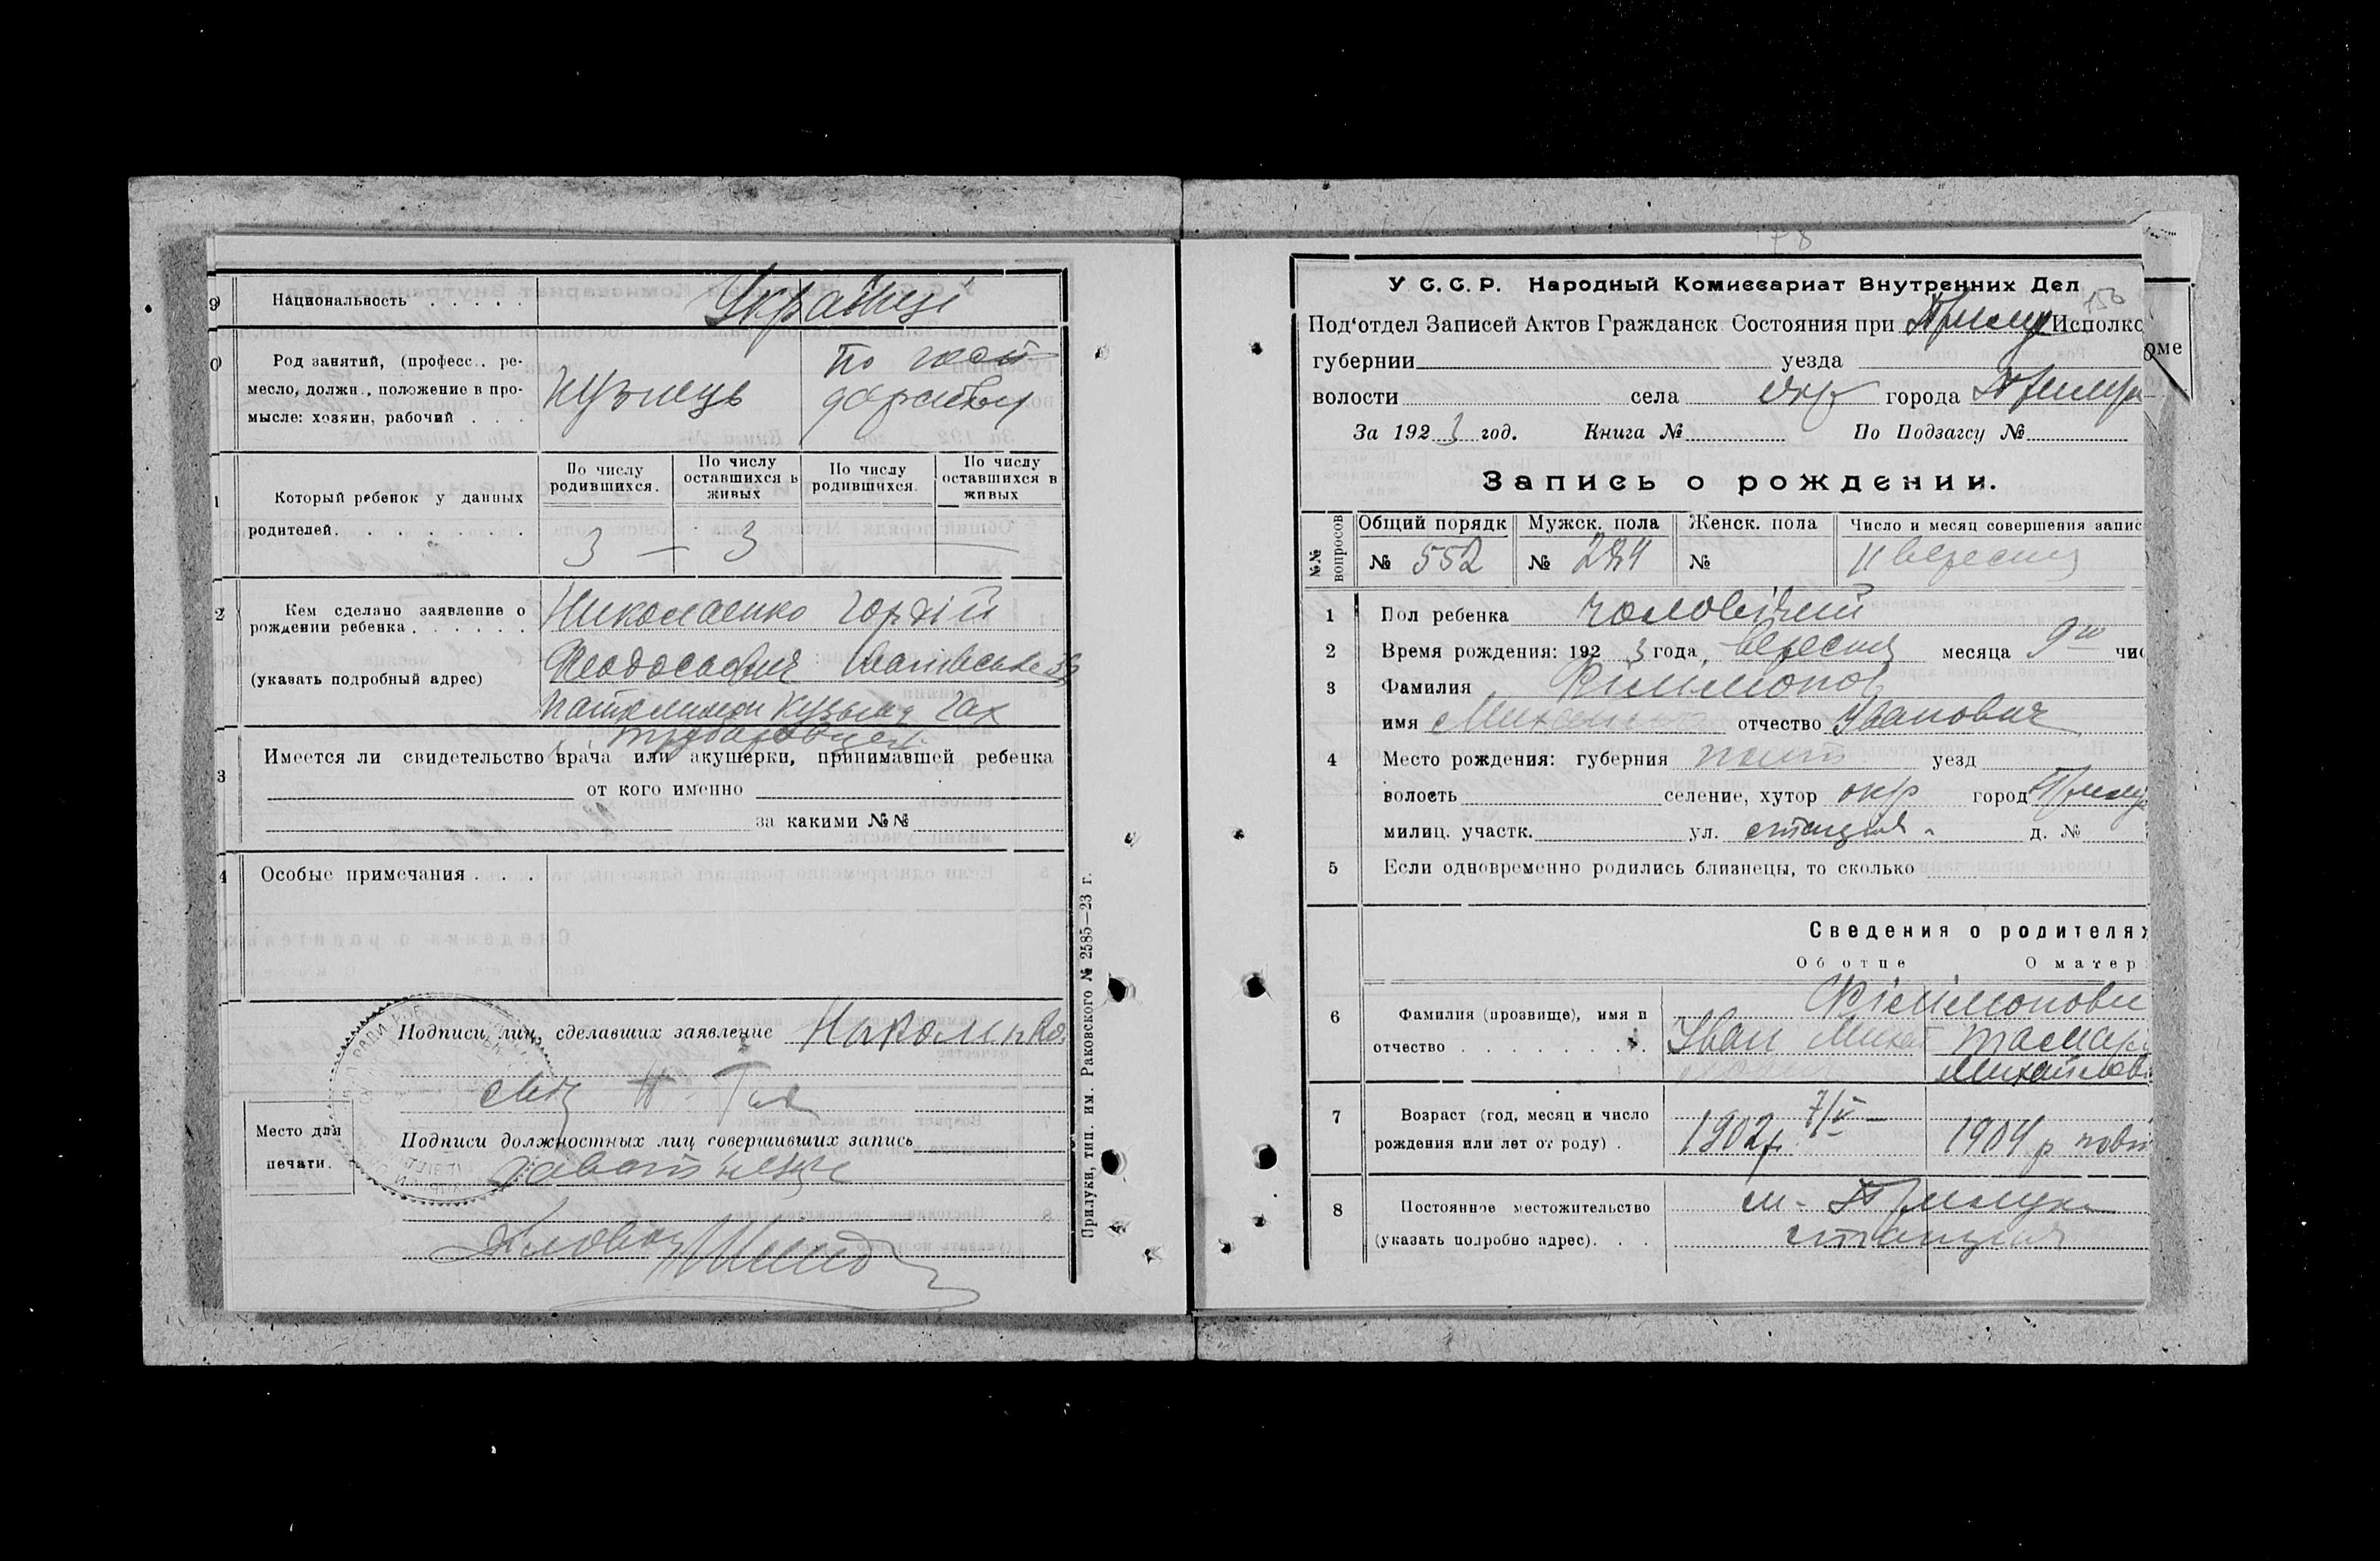 9 Национальность Українці
0 Род занятий, (професс., ре-
месло, должн., положение в про-
мысле: хозяин, рабочий
кузнець
По госп
дарству
1 Который ребенок у данных
родителей
По числу родившихся.
По числу оставшихся в живых
По числу родившихся.
По числу оставшихся в живых
3 — 3
2 Кем сделано заявление о
рождении ребенка
(указать подробный адрес)
Николаенко Гордій
Феодосаевич
3 Имеется ли свидетельство врача или акушерки, принимавшей ребенка
от кого именно
за какими №№
4 Особые примечания
Подписи лиц, сделавших заявление
Место для
печати.
Подписи должностных лиц совершивших запись
Прилуки, тип. им. Раковского № 2585—23 г.
78
У С. С. Р. Народный Комиссариат Внутренних Дел
156
Под'отдел Записей Актов Гражданск Состояния при Прилуц Исполко
оме
губернии уезда
волости села окр города Прилуки
За 1923 год. Книга № По Подзагсу №
Запись о рождении.
№№ вопросов
Общий порядк Мужск. пола Женск. пола Число и месяц совершения запис
№ 552 № 284 № 11 вересня
1 Пол ребенка чоловічий
2 Время рождения: 1923 года, вересня месяца 9го чис
3 Фамилия Філімонов
имя Михаил отчество Іванович
4 Место рождения: губерния Полт уезд
волость селение, хутор окр город Прилуки
милиц. участк. ул. станція д. №
5 Если одновременно родились близнецы, то сколько
Сведения о родителях
Об отце О матер
6 Фамилия (прозвище), имя и
отчество
Філімонови
Іван Михай
Тамара
Михайлов
7 Возраст (год, месяц и число
рождения или лет от роду)
1902р. 7/V
1904 р
8 Постоянное местожительство
(указать подробно адрес)
м. Прилуки
станция